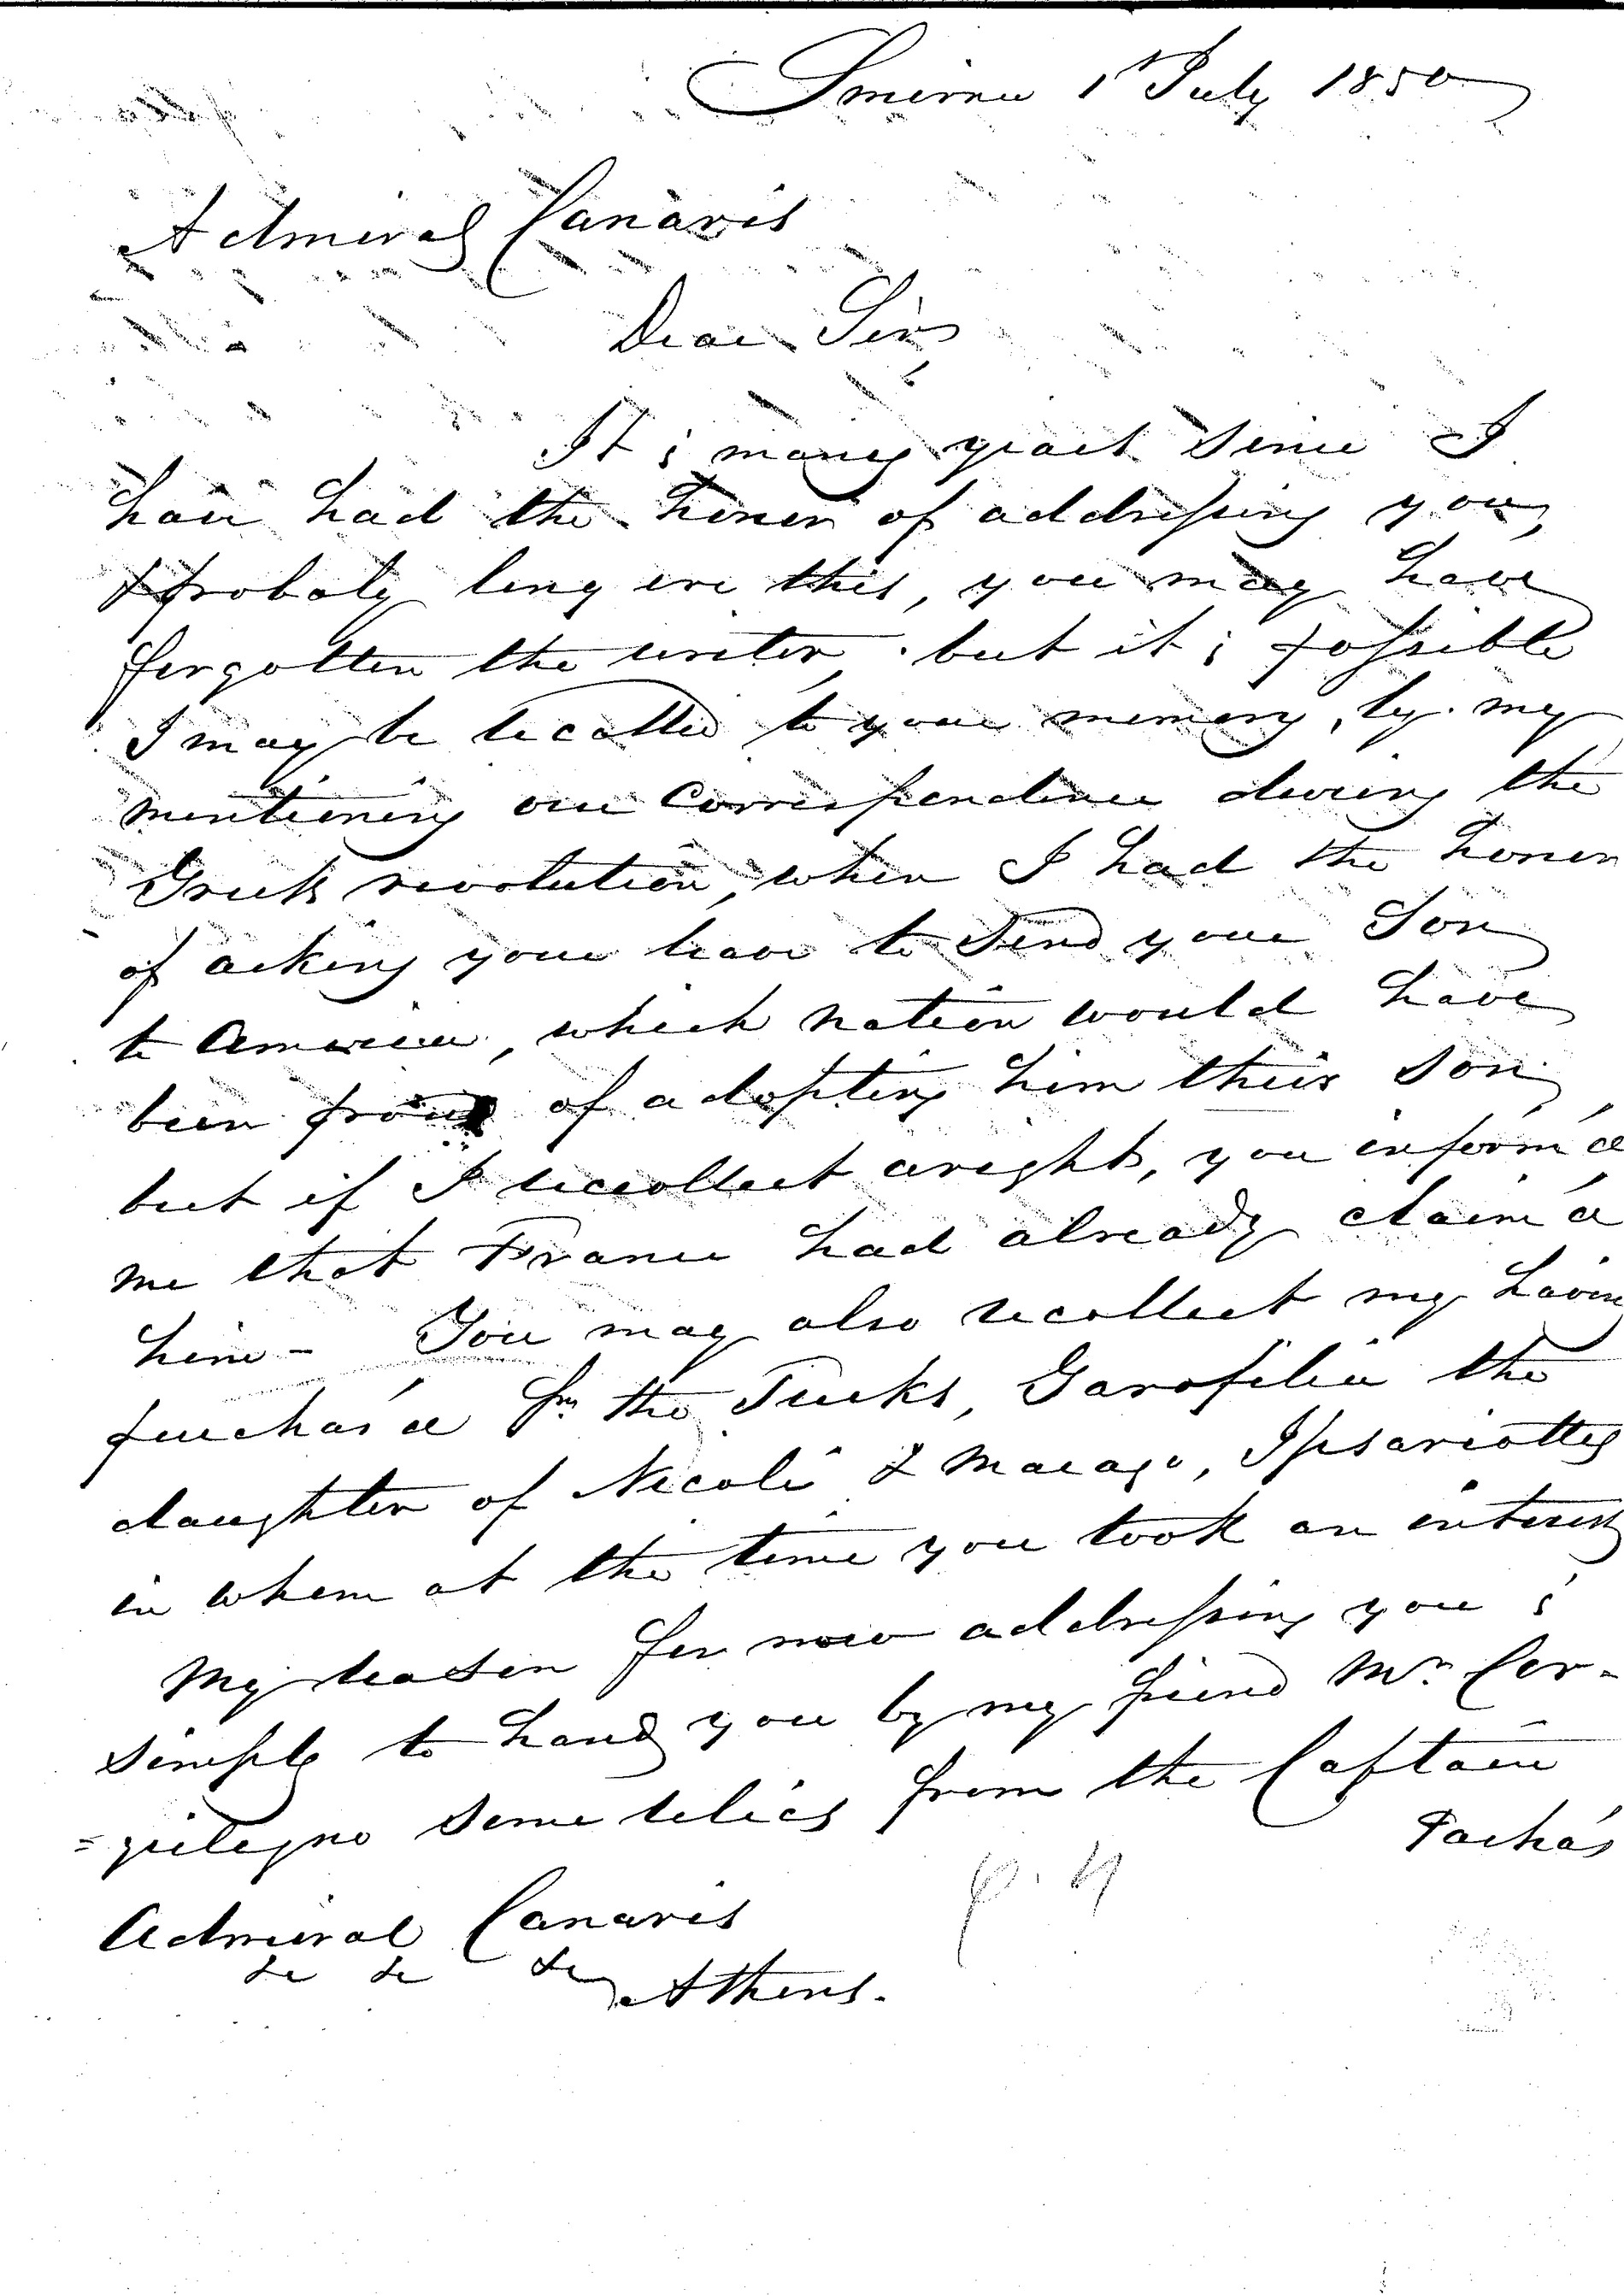 Smirna 1st July 1850
Admiral Canaris
Dear Sir,
It is many years since I
have had the honor of addressing you,
& probaly long ere this, you may have
forgotten the writer, but it is possible
I may be recalled to your memory, by my
mentioning our Correspondence during the
Greek revolution, when I had the honor
of asking your leave to send your Son
to America, which nation would have
been proud of adopting him their son
but if I reccollect aright, you inform'd
me that France had already claim'd
him - You may also recollect my having
purchas'd fm the Turks, Garofilia the
daughter of Nicoli & , Ipsariottes
in whom at the time you took an interest
My reason for now addressing you is
simple to hand you by my friend Mr. Cor-
= some relics from the Captain
Pacha's
Admiral Canaris
&c &c &c
Athens.